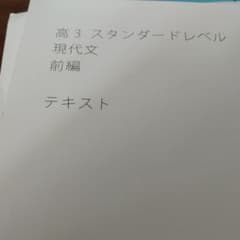 高3 スタンダードレベル
現代文
前編
テキスト